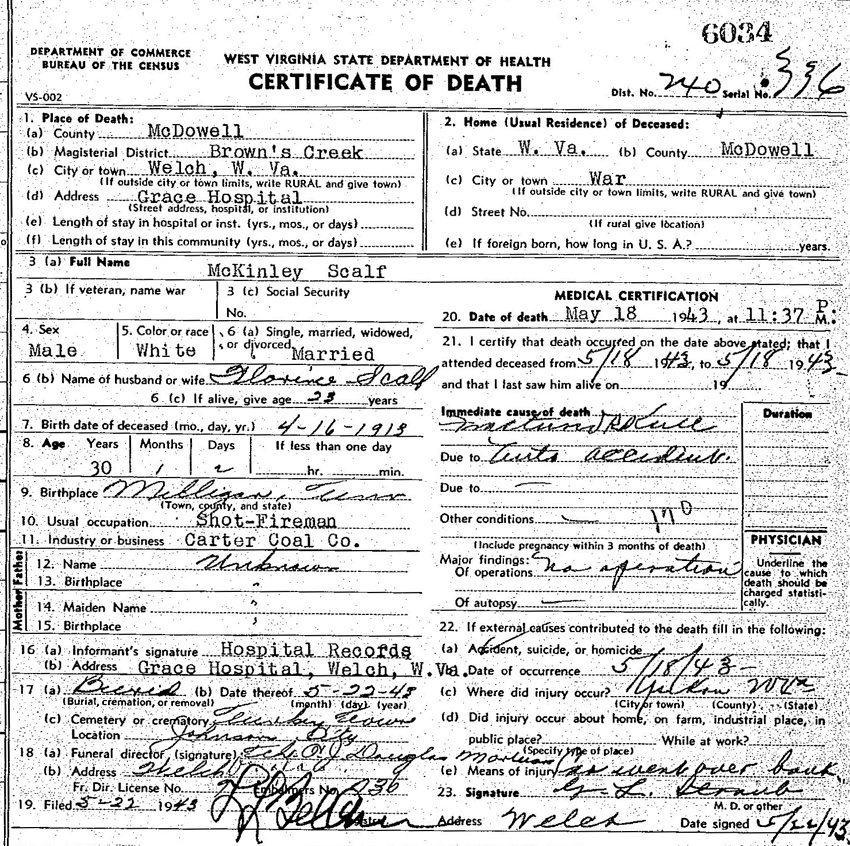 6034
DEPARTMENT OF COMMERCE
BUREAU OF THE CENSUS
WEST VIRGINIA STATE DEPARTMENT OF HEALTH
CERTIFICATE OF DEATH
VS-002
Dist. No. 240 Serial No. 336
1. Place of Death:
(a) County McDowell
(b) Magisterial District Brown's Creek
(c) City or town Welch, W. Va.
(If outside city or town limits, write RURAL and give town)
(d) Address Grace Hospital
(Street address, hospital, or institution)
(e) Length of stay in hospital or inst. (yrs., mos., or days)
(f) Length of stay in this community (yrs., mos., or days)
2. Home (Usual Residence) of Deceased:
(a) State W. Va. (b) County McDowell
(c) City or town War
(If outside city or town limits, write RURAL and give town)
(d) Street No.
(If rural give location)
(e) If foreign born, how long in U. S. A.? years.
3 (a) Full Name McKinley Scalf
3 (b) If veteran, name war
3 (c) Social Security
No.
4. Sex
Male
5. Color or race
White
6 (a) Single, married, widowed,
or divorced Married
6 (b) Name of husband or wife Florince Scalf
6 (c) If alive, give age 23 years
7. Birth date of deceased (mo., day, yr.) 4-16-1913
8. Age Years Months Days If less than one day
30 1 2 hr. min.
9. Birthplace Milligan, Tenn
(Town, county, and state)
10. Usual occupation Shot-Fireman
11. Industry or business Carter Coal Co.
Father
12. Name Unknown
13. Birthplace "
Mother
14. Maiden Name "
15. Birthplace "
16 (a) Informant's signature Hospital Records
(b) Address Grace Hospital, Welch, W.Va.
17 (a) Buried (b) Date thereof 5-22-43
(Burial, cremation, or removal) (month) (day) (year)
(c) Cemetery or crematory Town
Location Johnson City
18 (a) Funeral director, (signature) Douglas Mortuary
(b) Address Welch
Fr. Dir. License No. Embalmers No. 236
19. Filed 5-22 1943
MEDICAL CERTIFICATION
20. Date of death May 18 1943, at 11:37 P. M.
21. I certify that death occurred on the date above stated; that I
attended deceased from 5/18 1943, to 5/18 1943
and that I last saw him alive on 19
Immediate cause of death Skull
Duration
Due to Auto accident.
Due to —
Other conditions — 170
(Include pregnancy within 3 months of death)
Major findings:
Of operations no operation
Of autopsy —
PHYSICIAN
Underline the
cause to which
death should be
charged statisti-
cally.
22. If external causes contributed to the death fill in the following:
(a) Accident, suicide, or homicide
(b) Date of occurrence 5/18/43
(c) Where did injury occur? Yukon W Va
(City or town) (County) (State)
(d) Did injury occur about home, on farm, industrial place, in
public place? While at work?
(Specify type of place)
(e) Means of injury went over bank
23. Signature G. L. Straub
M. D. or other
Address Welch Date signed 5/22/43